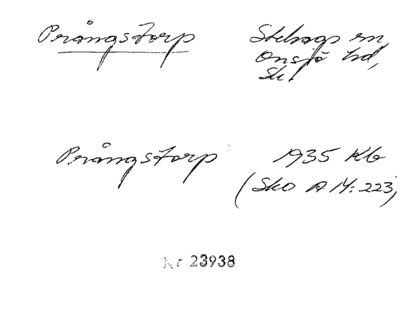 Prångstorp Stehags sn,
Onsjö hd,
Sk.
Prångstorp 1935 Kb
(Sko A M: 223)
Nr 23938